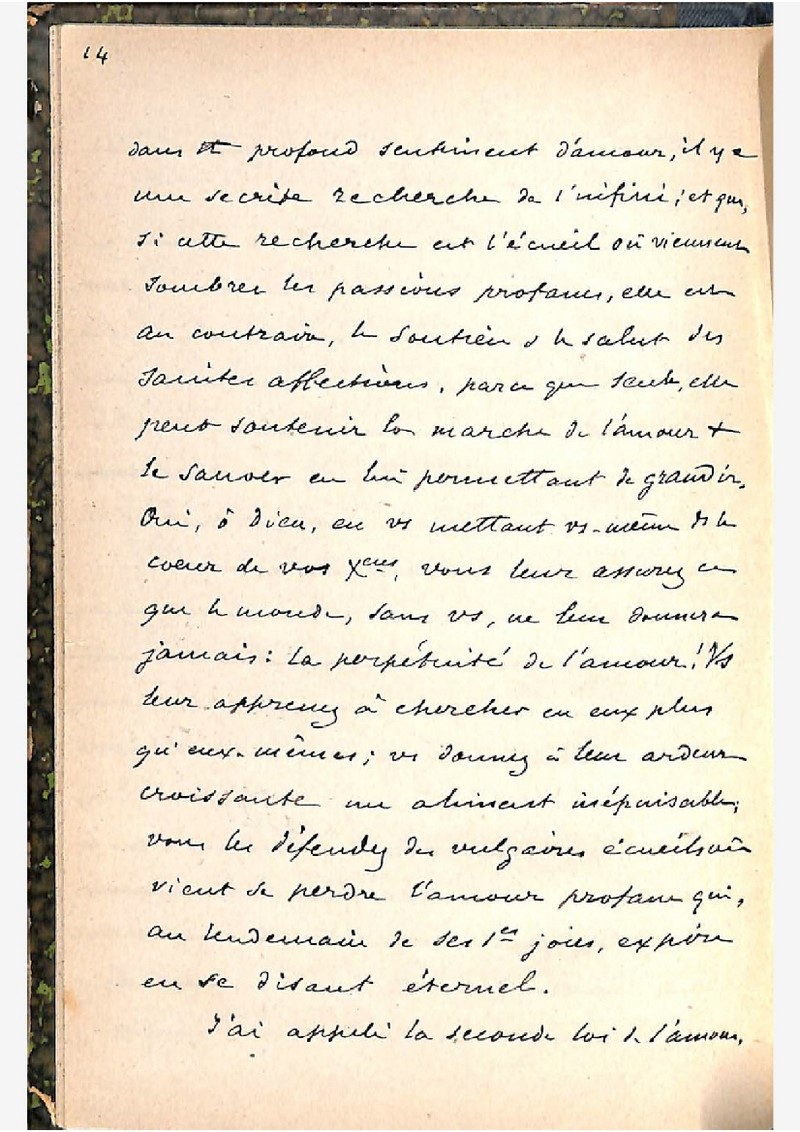 14
dans tt profond sentiment d'amour, il y a
une secrète recherche de l'infini; et que,
si cette recherche est l'écueil où viennent
sombrer les passions profanes, elle est
au contraire, le soutien & le salut des
saintes affections, parce que seule, elle
peut soutenir la marche de l'amour +
le sauver en lui permettant de grandir.
Oui, ô Dieu, en vs mettant vs-même ds le
coeur de vos Xens, vous leur assurez ce
que le monde, sans vs, ne leur donnera
jamais: la perpétuité de l'amour! Vs
leur apprenez à chercher en eux plus
qu'eux-mêmes; vs donnez à leur ardeur
croissante un aliment inépuisable;
vous les défendez des vulgaires écueils où
vient se perdre l'amour profane qui,
au lendemain de ses 1es joies, expire
en se disant éternel.
J'ai appelé la seconde loi de l'amour,